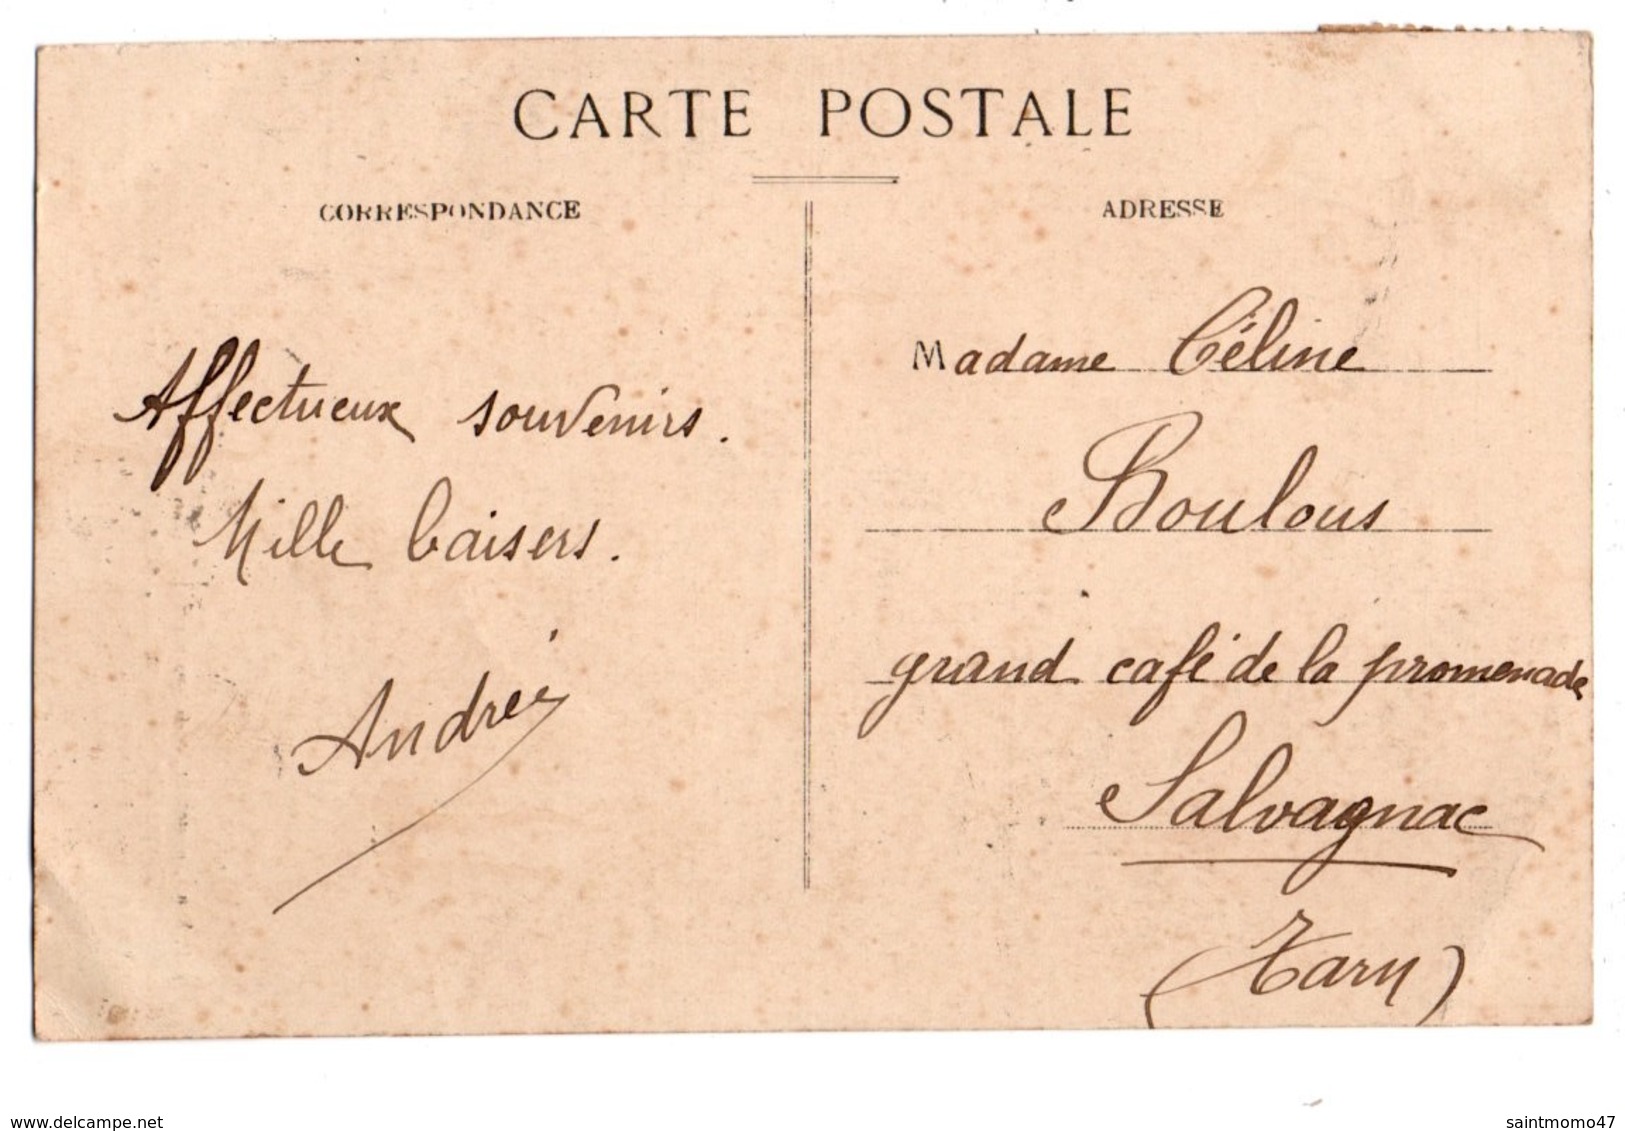 CARTE POSTALE
CORRESPONDANCE
ADRESSE
Affectueux souvenirs.
Mille baisers.
André
Madame Céline
Boulous
grand café de la promenade
Salvagnac
(Tarn)
www.delcampe.net
saintmomo47